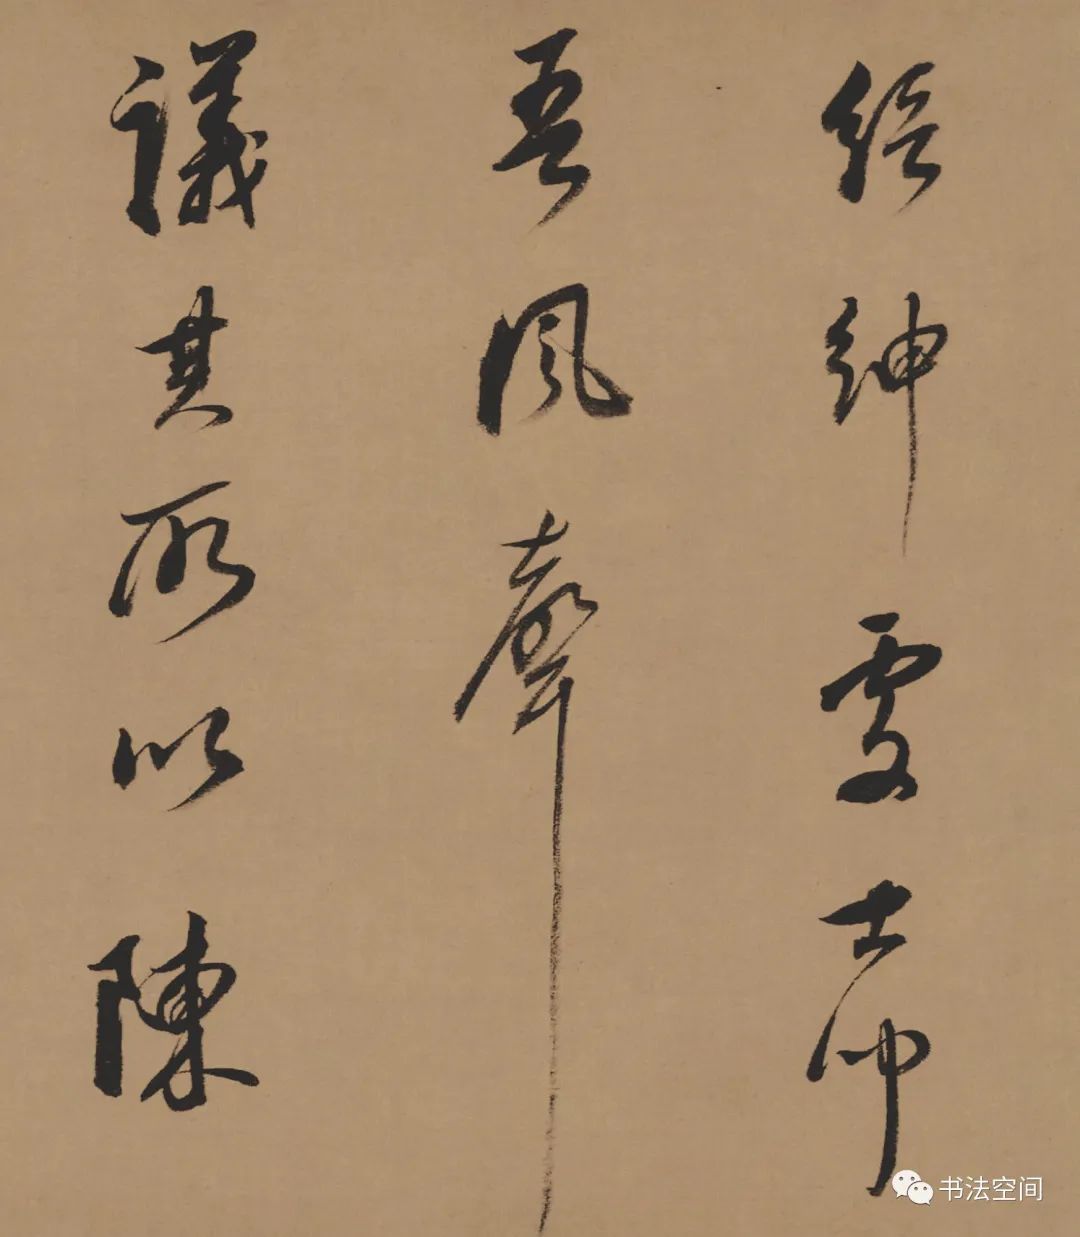 縉紳處士聞
吾風聲
議其所以陳
书法空间